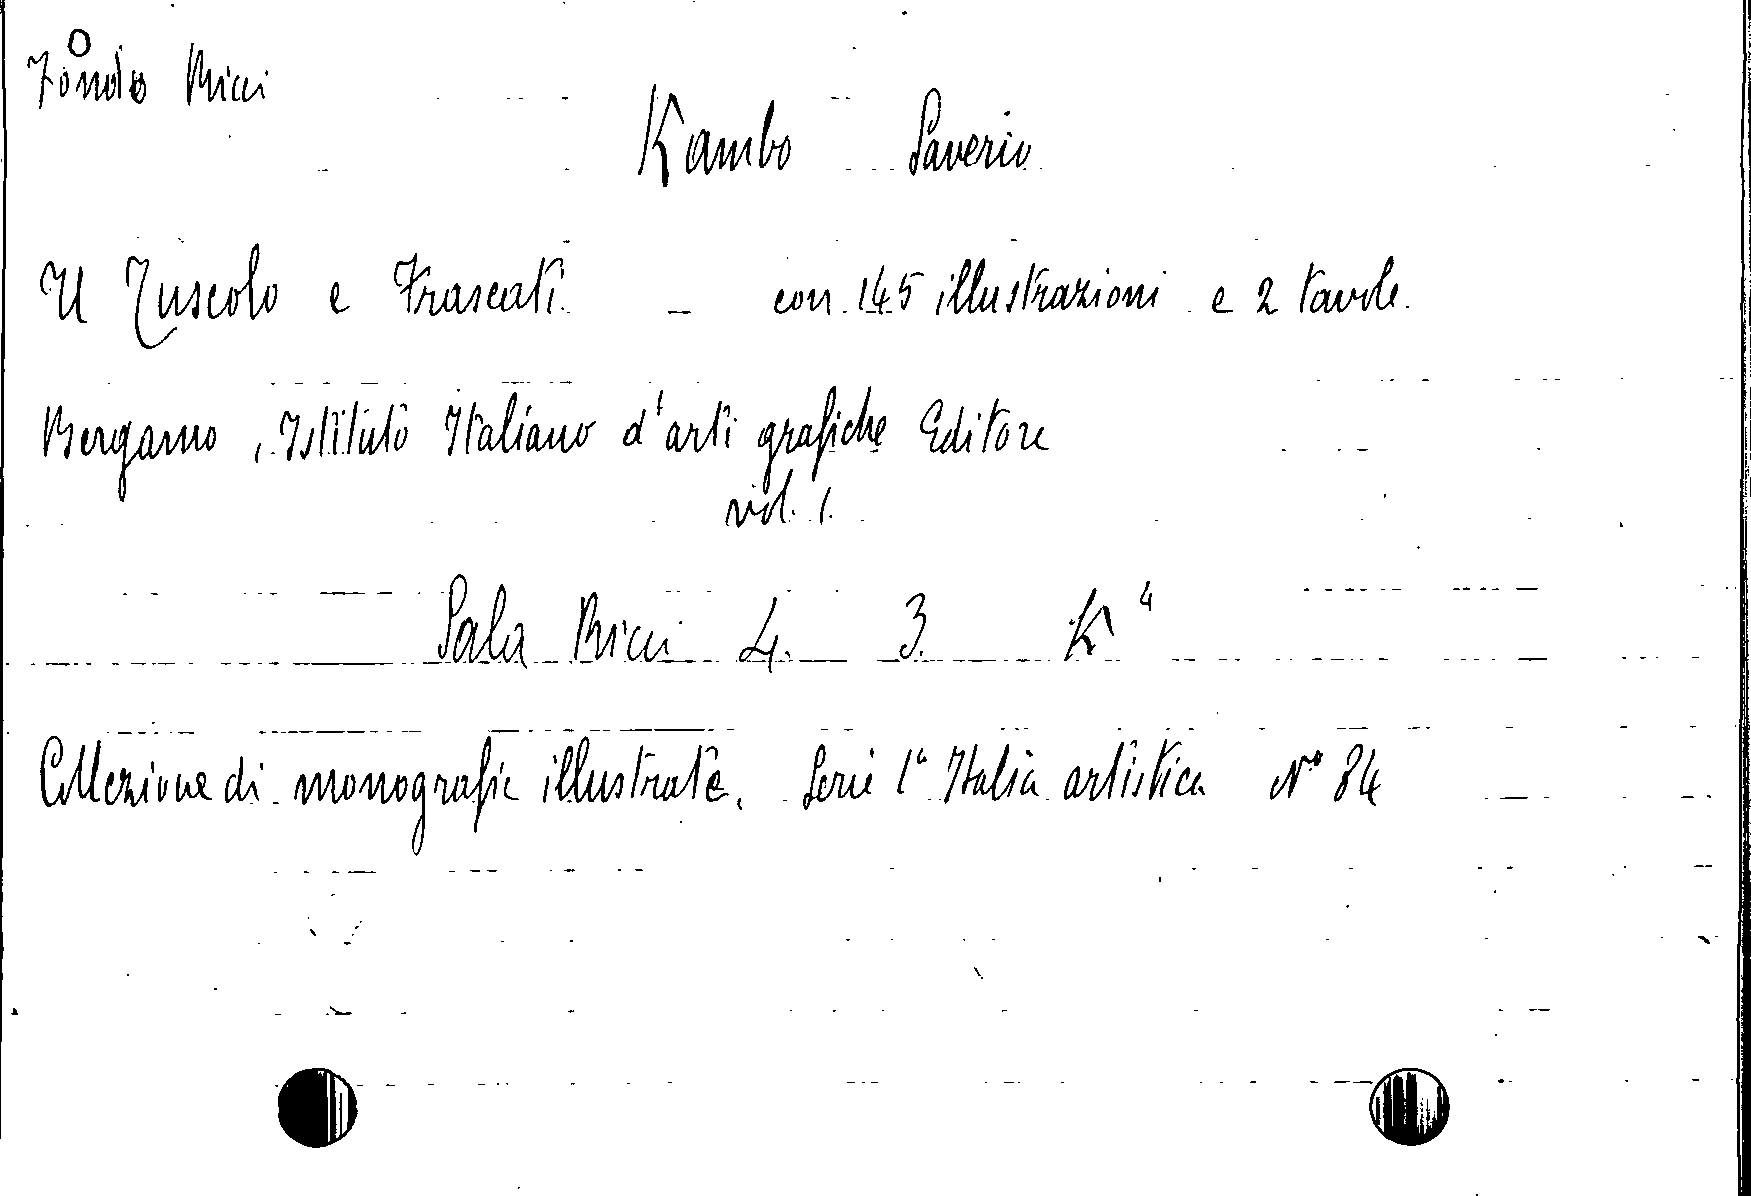 Fondo Ricci
Kambo Saverio
Il Tuscolo e Frascati. – con 145 illustrazioni e 2 tavole.
Bergamo, Istituto Italiano d'arti grafiche Editore
vol. 1.
Sala Ricci 4. 3. K⁴
Collezione di monografie illustrate. Serie 1ª Italia artistica Nº 84